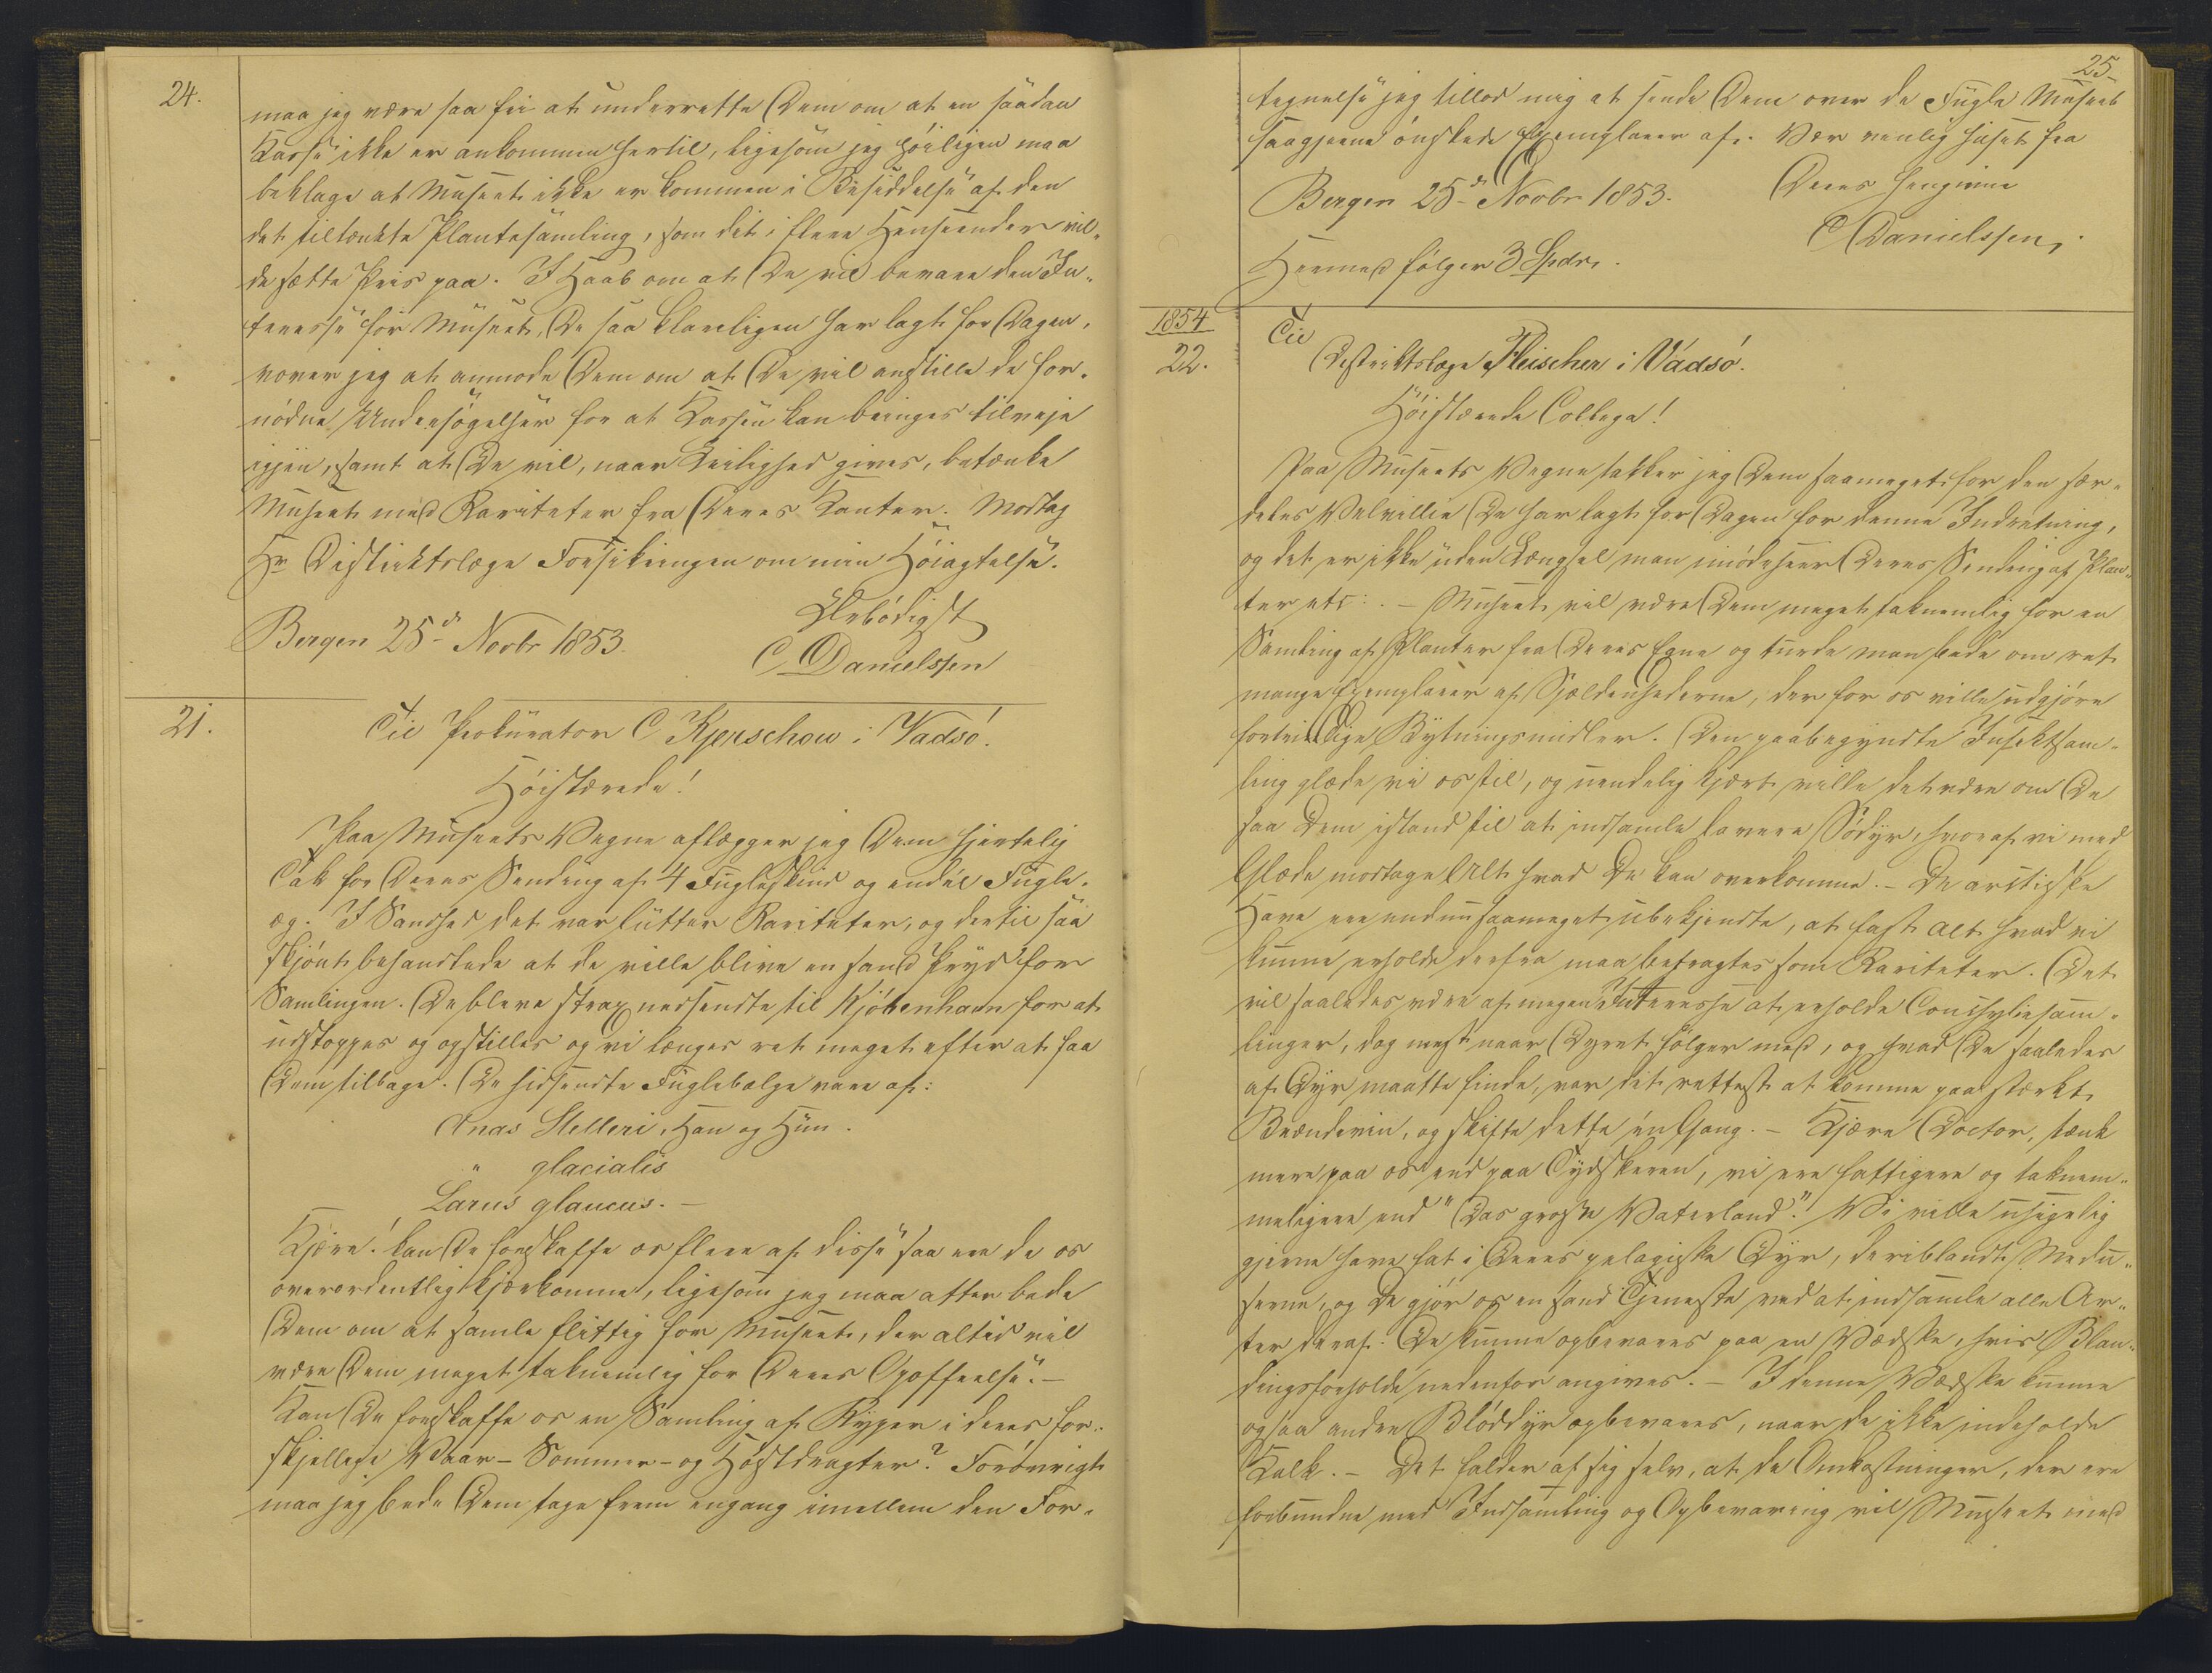 24.
maa jeg være saa fri at underrette Dem om at en saadan
Kasse ikke er ankommen hertil, ligesom jeg høiligen maa
beklage at Museet ikke er kommen i Besiddelse af den
det tiltænkte Plantesamling, som det i flere Henseender vil-
de sætte Priis paa. I Haab om at De vil bevare den In-
teresse for Museet, De saa klarligen har lagt for Dagen,
vover jeg at anmode Dem om at De vil anstille de for-
nødne Undersøgelser for at Kassen kan bringes tilveje
igjen, samt at De vil, naar Leilighed gives, betænke
Museet med Rariteter fra Deres Kanter. Modtag
Hr Distriktslæge Forsikringen om min Høiagtelse.
Ærbødigst
Bergen 25de Novbr 1853.
C Danielssen
21.
Til Prokurator C Kjerschow i Vadsö.
Høistærede!
Paa Museets Vegne aflægger jeg Dem hjertelig
Tak for Deres Sending af 4 Fugleskind og endel Fugle-
æg. I Sandhed det var lutter Rariteter, og dertil saa
skjønt behandlede at de ville blive en sand Pryd for
Samlingen. De bleve strax nedsendte til Kjöbenhavn for at
udstoppes og opstilles og vi længes ret meget efter at faa
Dem tilbage. De hidsendte Fuglebælge vare af:
Anas Stelleri, Han og Hun.
" glacialis
Larus glaucus. –
Kjære! kan De forskaffe os flere af disse saa ere de os
overordentlig kjærkomne, ligesom jeg maa atter bede
Dem om at samle flittig for Museet, der altid vil
være Dem meget taknemlig for Deres Opoffrelse. –
Kan De forskaffe os en Samling af Ryper i deres for-
skjellige Vaar- Sommer- og Høstdragter? Forøvrigt
maa jeg bede Dem tage frem engang imellem den For-
25
tegnelse jeg tillod mig at sende Dem over de Fugle Museet
saagjerne ønskede Exemplarer af. Vær venlig hilset fra
Deres hengivne
Bergen 25de Novbr 1853.
C Danielssen,
Hermed følger 3 Spdr.
1854
22.
Til
Distriktslæge Fleischer i Vadsö.
Høistærede Collega!
Paa Museets Vegne takker jeg Dem saameget for den sær-
deles Velvillie De har lagt for Dagen for denne Indretning,
og det er ikke uden Længsel man imødeseer Deres Sending af Plan-
ter etc: . – Museet vil være Dem meget taknemlig for en
Samling af Planter fra Deres Egne og turde man bede om ret
mange Exemplarer af Sjældenhederne, der for os ville udgjøre
fortrinlige Bytningsmidler. Den paabegyndte Insektsam-
ling glæde vi os til, og uendelig kjært ville det være om De
saa Dem istand til at indsamle lavere Södyr, hvoraf vi med
Glæde modtage Alt hvad De kan overkomme. – De arctiske
Have ere endnu saameget ubekjendte, at fast alt hvad vi
kunne erholde derfra maa betragtes som Rariteter. Det
vil saaledes være af megen Interesse at erholde Conchyliesam-
linger, dog mest naar Dyret følger med, og hvad De saaledes
af Dyr maatte finde, var det rettest at komme paa stærkt
Brændeviin, og skifte dette én Gang. – Kjære Doctor, tænk
mere paa os end paa Tydskeren, vi ere fattigere og taknem-
meligere end "Das grosse Vaterland"! Vi ville usigelig
gjerne have fat i Deres pelagiske Dyr, deriblandt Medu-
serne, og De gjör os en sand Tjeneste ved at indsamle alle Ar-
ter deraf. De kunne opbevares paa en Vædske, hvis Blan-
dingsforholde nedenfor angives. – I denne Vædske kunne
ogsaa andre Bløddyr opbevares, naar de ikke indeholde
Kalk. – Det falder af sig selv, at de Omkostninger, der ere
forbundne med Indsamling og Opbevaring vil Museet med